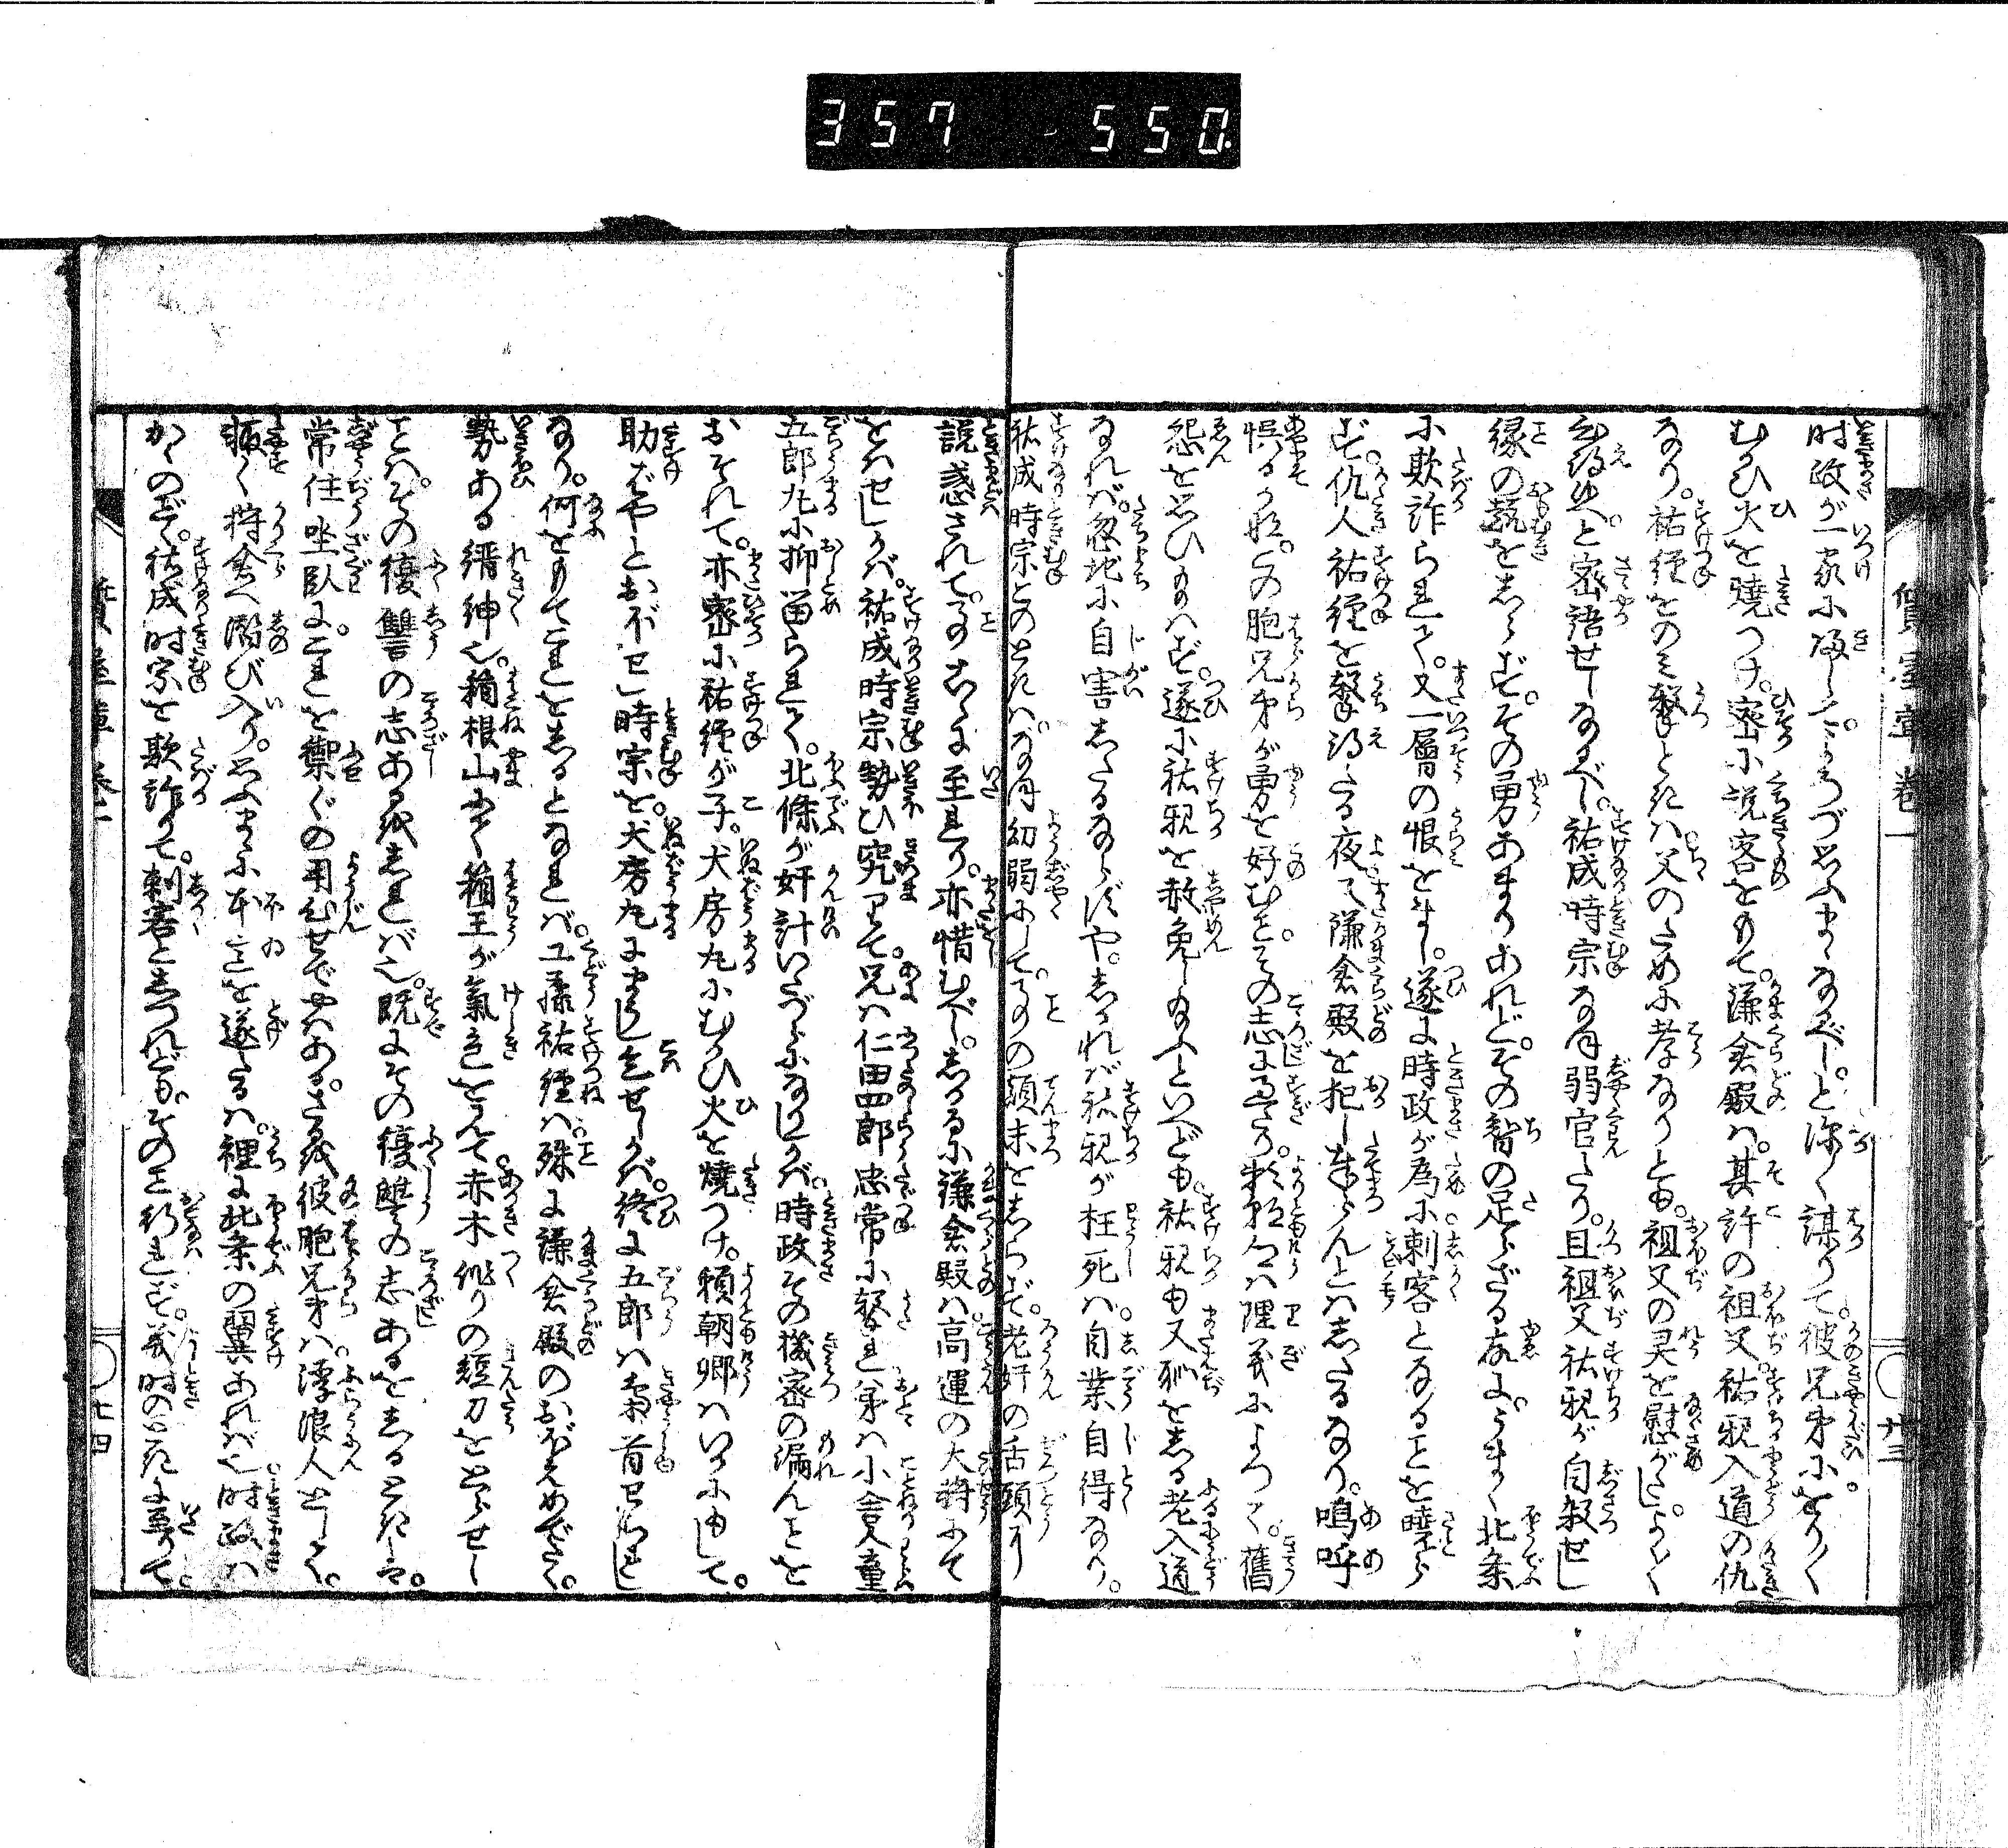 357 550
質屋庫巻一
廿三
時政が一家に帰して。よろづ思ふまゝなるべしと深く謀りて。彼兄弟にをり〳〵
むかひ火を焼つけ。密に説客をもて。鎌倉殿は。其許の祖父。祐親入道の仇
なり。祐経をのミ撃とき八父のために孝なりとも。祖父の灵を慰がたし。よく〳〵
と密語せしなるべし。祐成時宗なほ弱官たり。且祖父祐親が自殺せし
縁の趣をしらず。その勇あまりあれど。その智の足らざる故に。うまく北条
に欺詐られて。又一層の恨をまし。遂に時政が為に刺客となることを暁ら
ず。仇人祐経を撃得たる夜て鎌倉殿を犯し奉らんとはしたるなり。嗚呼
惧るかな。この胞兄弟が勇を好むこと。その志に過たり。頼朝卿ハ理義によつて。舊
怨を思ひ給はず。遂に祐親を赦免し給ふといへども。祐親も又恥をしる老入道
なれバ。忽地に自害したるならずや。しかれバ祐親が枉死ハ。自業自得なり。
祐成時宗このときハ。なほ幼弱にして。ことの顛末をしらず。老奸の舌頭に
説惑されて。ことこゝに至れり。亦惜むべし。しかるに鎌倉殿ハ。高運の大将にて
をハせしかバ。祐成時宗勢ひ究りて。兄ハ仁田四郎忠常に撃れ。弟ハ小舎人童
五郎丸に抑留られて。北條が奸計いたづらになりしかバ。時政その機密の漏んことを
おそれて。亦密に祐経が子。犬房丸にむかひ火を焼つけ。頼朝卿ハいかにもして。
助ばやとおぼせし時宗を。犬房丸にまうし乞せしかバ。終に五郎ハ梟首せられし
なり。何をもてこれをしるとなれバ。工藤祐経ハ。殊に鎌倉殿のおぼえめでたく。
勢ある縉紳也。箱根山にて箱王が氣色を見て。赤木作りの短刀をとらせし
ことハ。その復讐の志あるを知れバ也。既にその復讐の志あるをしるときハ。
常住坐臥に。これを禦ぐの用心せでやハある。さるを彼胞兄弟ハ。浮浪人として。
輙く狩倉へ濳び入り。思ふまゝに本意を遂たるハ。裡に北条の翼あれバ也。時政ハ
かくのごとく。祐成時宗を欺詐りて。刺客としつれども。そのミ行れず。義時のときに至りて。
質屋庫巻一
廿四